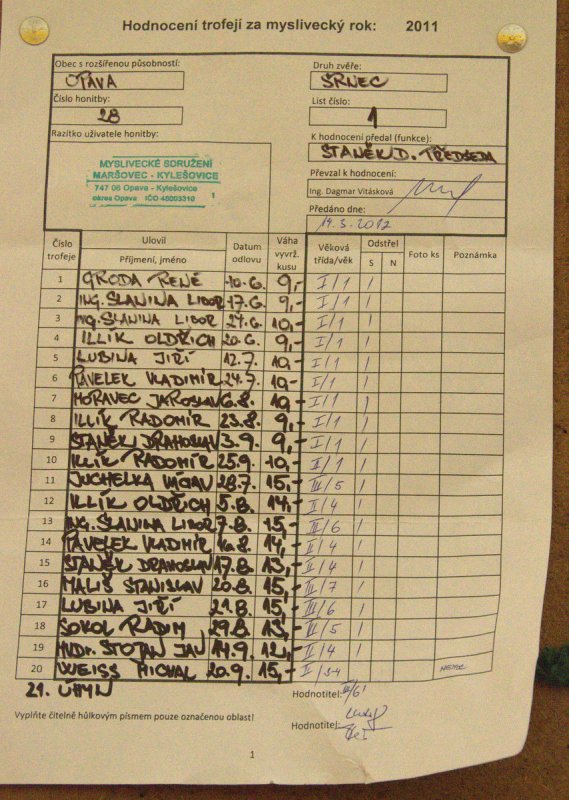 Hodnocení trofejí za myslivecký rok: 2011
Obec s rozšířenou působností:
OPAVA
Druh zvěře:
SRNEC
Číslo honitby:
28
List číslo:
1
Razítko uživatele honitby:
K hodnocení předal (funkce):
STANĚK D. PŘEDSEDA
MYSLIVECKÉ SDRUŽENÍ
MARŠOVEC - KYLEŠOVICE
747 06 Opava - Kylešovice
okres Opava IČO 48003310 1
Převzal k hodnocení:
Ing. Dagmar Vitásková
Předáno dne:
14.3.2012
Číslo trofeje Ulovil Příjmení, jméno Datum odlovu Váha vyvrž. kusu Věková třída/věk Odstřel S N Foto ks Poznámka
1 GRODA RENÉ 10.6. 9,- I/1 /
2 ING. SLANINA LIBOR 17.6. 9,- I/1 /
3 ING. SLANINA LIBOR 27.6. 10,- I/1 /
4 ILLÍK OLDŘICH 20.6. 9,- I/1 /
5 LUBINA JIŘÍ 12.7. 10,- I/1 /
6 PAVELEK VLADIMÍR 24.7. 10,- I/1 /
7 MORAVEC JAROSLAV 6.8. 10,- I/1 /
8 ILLÍK RADOMÍR 23.8. 9,- I/1 /
9 STANĚK DRAHOSLAV 3.9. 9,- I/1 /
10 ILLÍK RADOMÍR 25.9. 10,- I/1 /
11 JUCHELKA 28.7. 15,- III/5 /
12 ILLÍK OLDŘICH 5.8. 14,- II/4 /
13 ING. SLANINA LIBOR 7.8. 15,- III/6 /
14 PAVELEK VLADIMÍR 16.8. 14,- II/4 /
15 STANĚK DRAHOSLAV 17.8. 13,- II/4 /
16 MALIŠ STANISLAV 20.8. 15,- III/7 /
17 LUBINA JIŘÍ 21.8. 15,- III/6 /
18 SOKOL RADIM 29.8. 13,- III/5 /
19 MVDr. STOJAN JAN 14.9. 12,- II/4 /
20 WEISS MICHAL 20.9. 15,- II/3-4
21. ÚHYN
Hodnotitel: III/6
Vyplňte čitelně hůlkovým písmem pouze označenou oblast!
Hodnotitel:
1